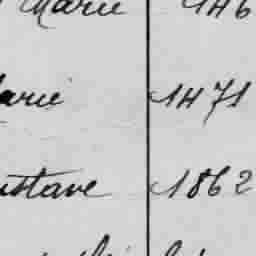 Marie 1H6
arie 1H71
ustave 1862